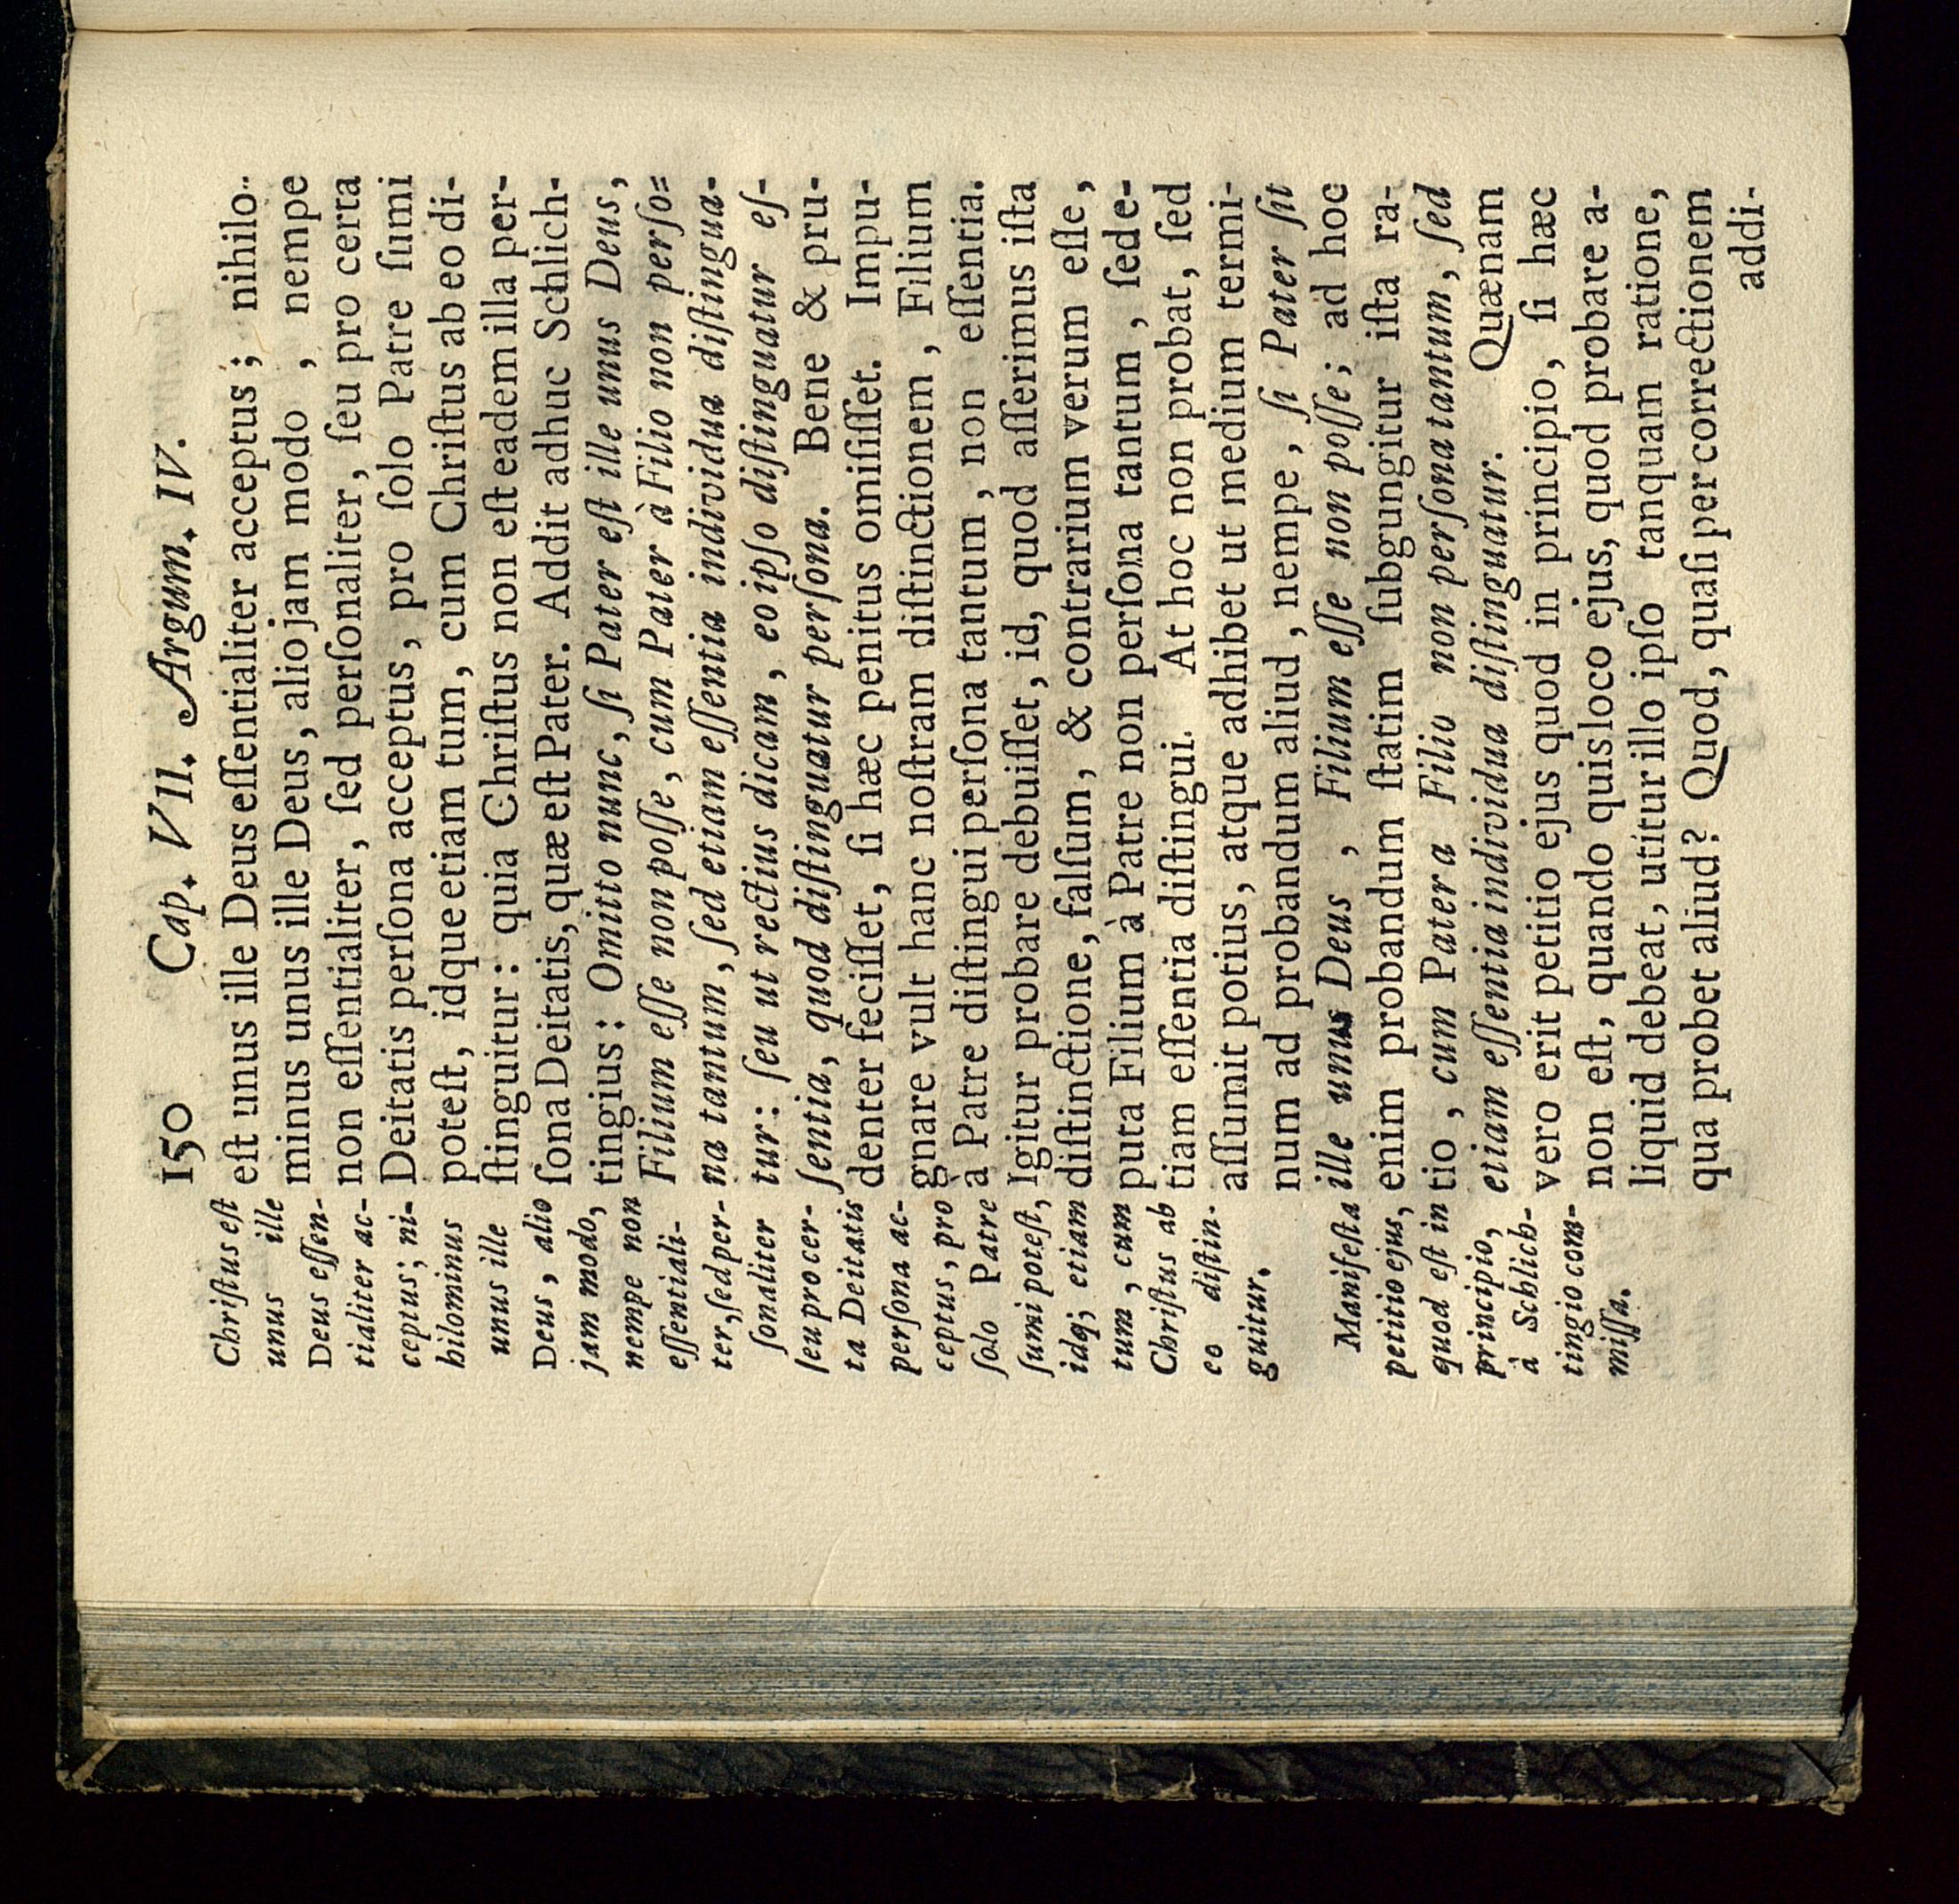 150 Cap. VII. Argum. IV.
eſt unus ille Deus eſſentialiter acceptus; nihilo-
minus unus ille Deus, alio jam modo, nempe
non eſſentialiter, ſed perſonaliter, ſeu pro certa
Deitatis perſona acceptus, pro ſolo Patre ſumi
poteſt, idque etiam tum, cum Chriſtus ab eo di-
ſtinguitur: quia Chriſtus non eſt eadem illa per-
ſona Deitatis, quæ eſt Pater. Addit adhuc Schlich-
tingius: Omitto nunc, ſi Pater eſt ille unus Deus,
Filium eſſe non poſſe, cum Pater à Filio non perſo-
na tantum, ſed etiam eſſentia individua diſtingua-
tur: ſeu ut rectius dicam, eo ipſo diſtinguatur eſ-
ſentia, quod diſtinguatur perſona. Bene & pru-
denter feciſſet, ſi hæc penitus omiſiſſet. Impu-
gnare vult hanc noſtram diſtinctionem, Filium
à Patre diſtingui perſona tantum, non eſſentia.
Igitur probare debuiſſet, id, quod aſſerimus iſta
diſtinctione, falſum, & contrarium verum eſſe,
puta Filium à Patre non perſona tantum, ſed e-
tiam eſſentia diſtingui. At hoc non probat, ſed
aſſumit potius, atque adhibet ut medium termi-
num ad probandum aliud, nempe, ſi Pater ſit
ille unus Deus, Filium eſſe non poſſe; ad hoc
enim probandum ſtatim ſubgungitur iſta ra-
tio, cum Pater a Filio non perſona tantum, ſed
etiam eſſentia individua diſtinguatur. Quænam
vero erit petitio ejus quod in principio, ſi hæc
non eſt, quando quis loco ejus, quod probare a-
liquid debeat, utitur illo ipſo tanquam ratione,
qua probet aliud? Quod, quaſi per correctionem
addi-
Chriſtus eſt
unus ille
Deus eſſen-
tialiter ac-
ceptus; ni-
hilominus
unus ille
Deus, alio
jam modo,
nempe non
eſſentiali-
ter, ſed per-
ſonaliter
ſeu pro cer-
ta Deitatis
perſona ac-
ceptus, pro
ſolo Patre
ſumi poteſt,
idq; etiam
tum, cum
Chriſtus ab
eo diſtin-
guitur.
Manifeſta
petitio ejus,
quod eſt in
principio,
à Schlich-
tingio com-
miſſa.